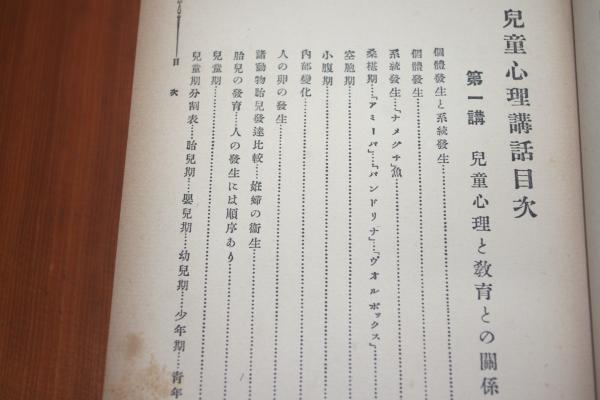 兒童心理講話目次
第一講 兒童心理と敎育との關係
個體發生と系統發生
個體發生
系統發生…「ナメクヂ」魚
桑椹期…「アミーバ」…「パンドリナ」…「ヴオルボツクス」
空胞期
小腹期
內部變化
人の卵の發生
諸動物胎兒發達比較……姙婦の衞生
胎兒の發育…人の發生には順序あり
兒童期
兒童期分割表…胎兒期…嬰兒期…幼兒期…少年期…靑年
目次